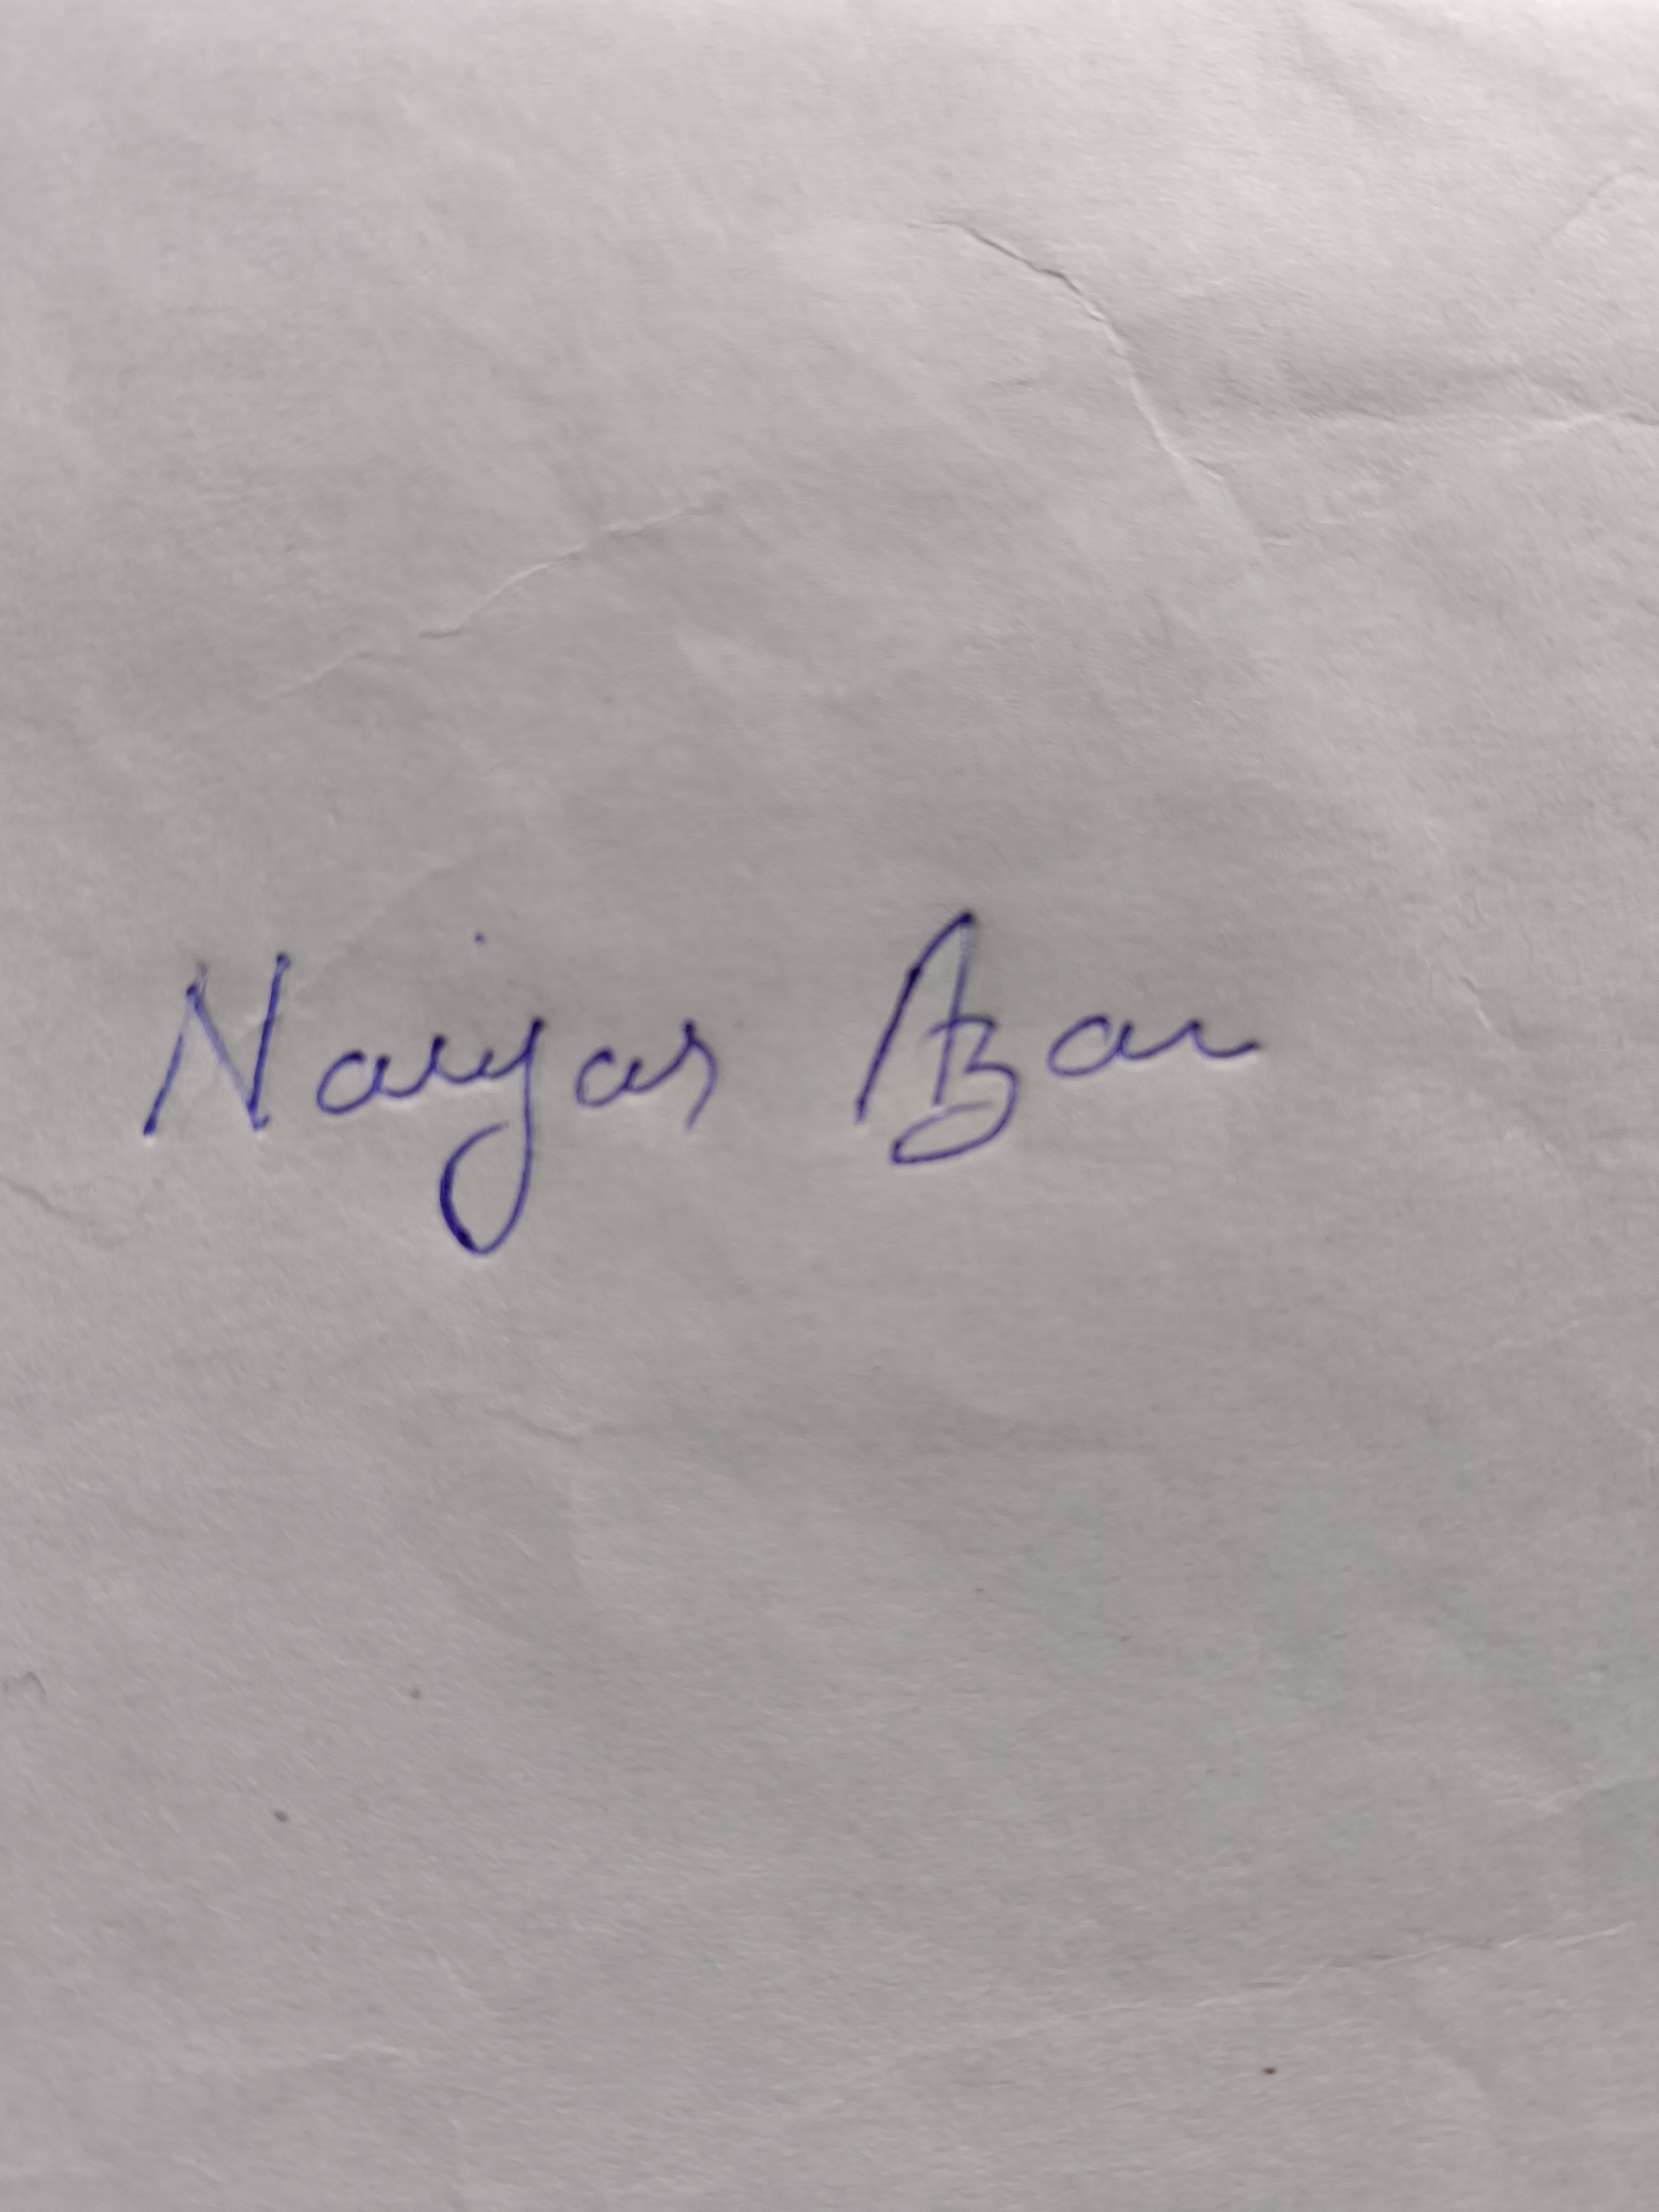 Naiyar Azam